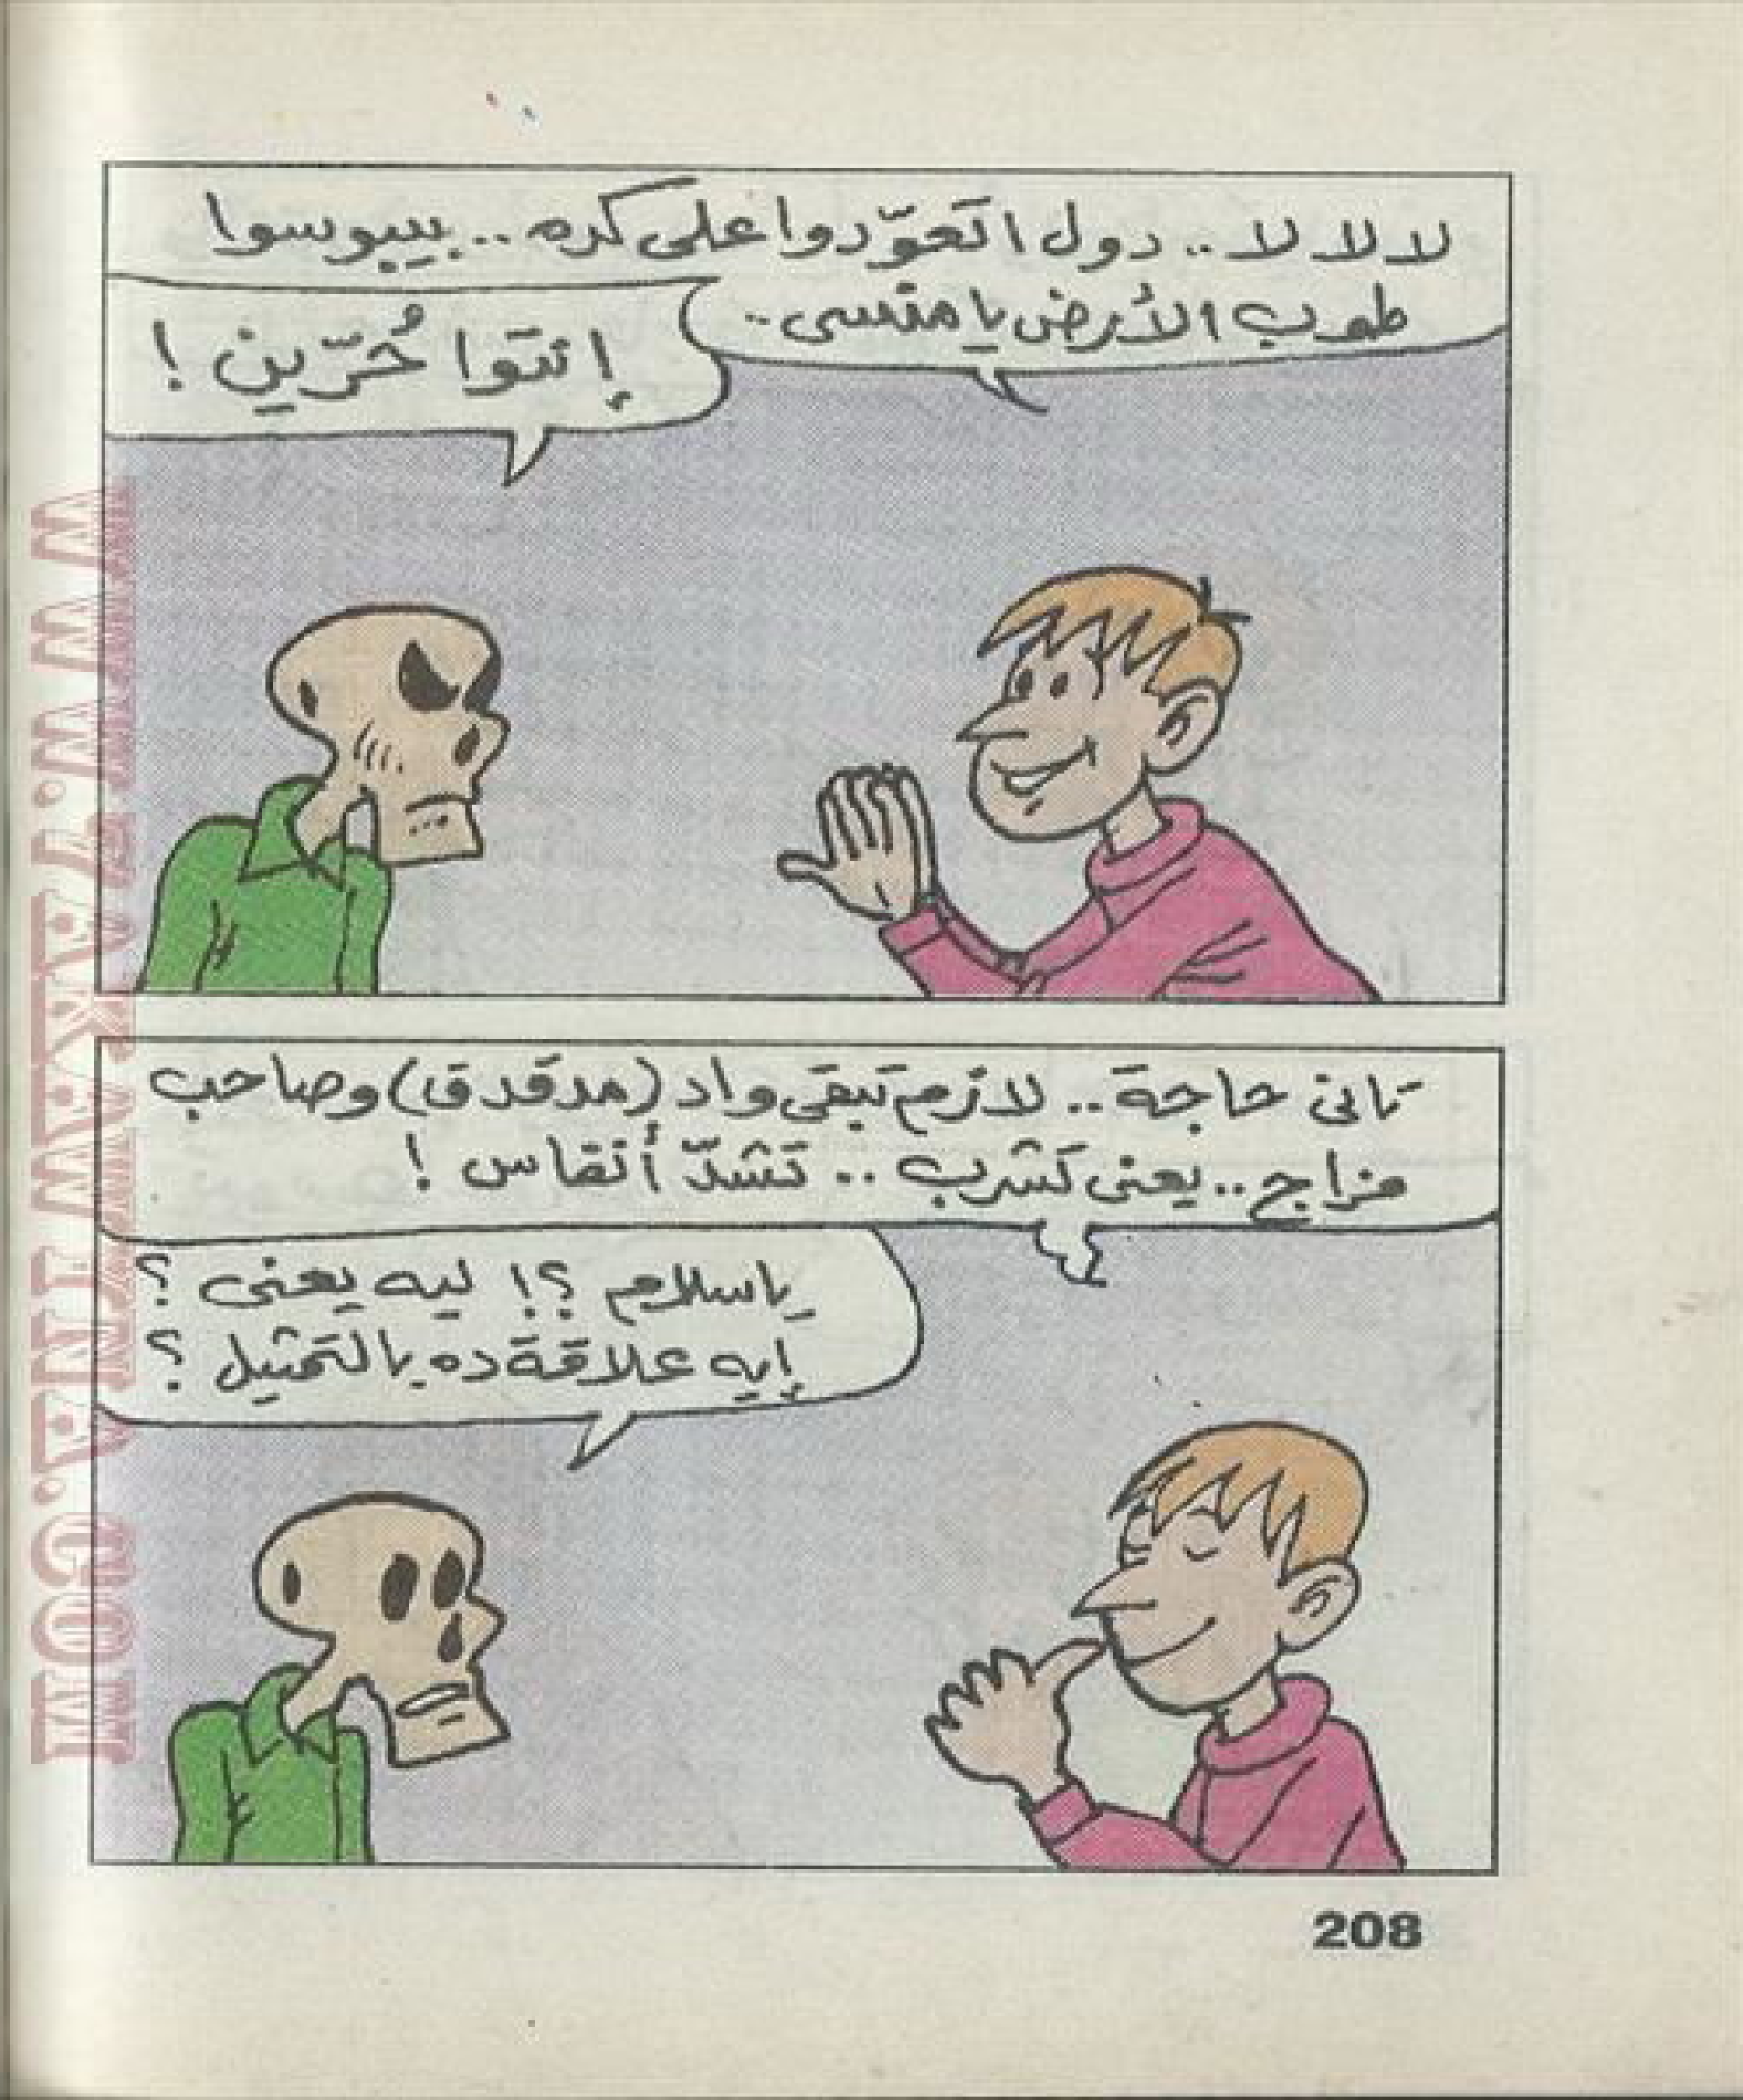 لا لا لا .. دول اتعوّدوا على كده .. بيبوسوا
طوب الأرض يا منسى ..
إنتوا حُرّين !
تانى حاجة .. لازم تبقى واد (مدقدق) وصاحب
مزاج .. يعنى تشرب .. تشدّ أنفاس !
ياسلام ؟! ليه يعنى ؟
إيه علاقة ده بالتمثيل ؟
208